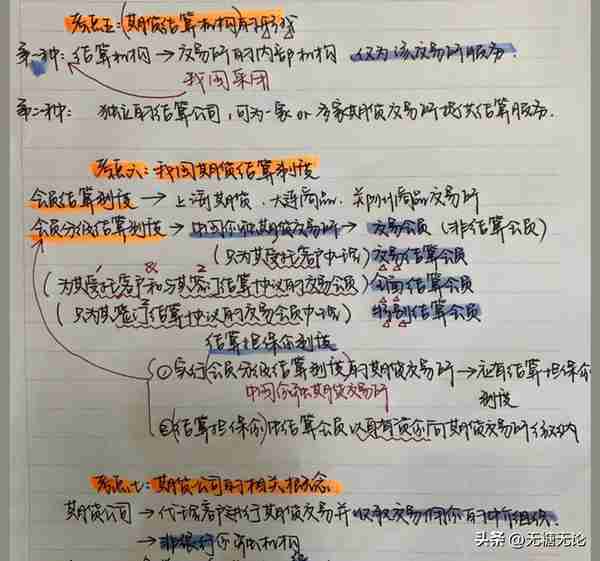 考点五：(期货结算机构)的形式
第一种：结算机构→交易所的内部机构 仅为该交易所服务.
我国采用
第二种： 独立的结算公司，可为一家or多家期货交易所提供结算服务.
考点六：我国期货结算制度
会员结算制度→上海期货、大连商品、郑州商品交易所
会员分级结算制度→中国金融期货交易所→交易会员(非结算会员)
(只为其受托客户申请)交易结算会员
1 & 2
(为其受托客户和与其签订结算协议的交易会员)全面结算会员
(只为其签订结算协议的交易会员申请)特别结算会员
结算担保金制度
①实行(会员分级结算制度)的期货交易所→应有结算担保金
中国金融期货交易所 制度
②(结算担保金)由结算会员以自有资金向期货交易所缴纳
考点七：期货公司的相关概念.
期货公司→代理客户进行期货交易并收取交易佣金的中介组织.
→非银行金融机构
头条@无糖无论